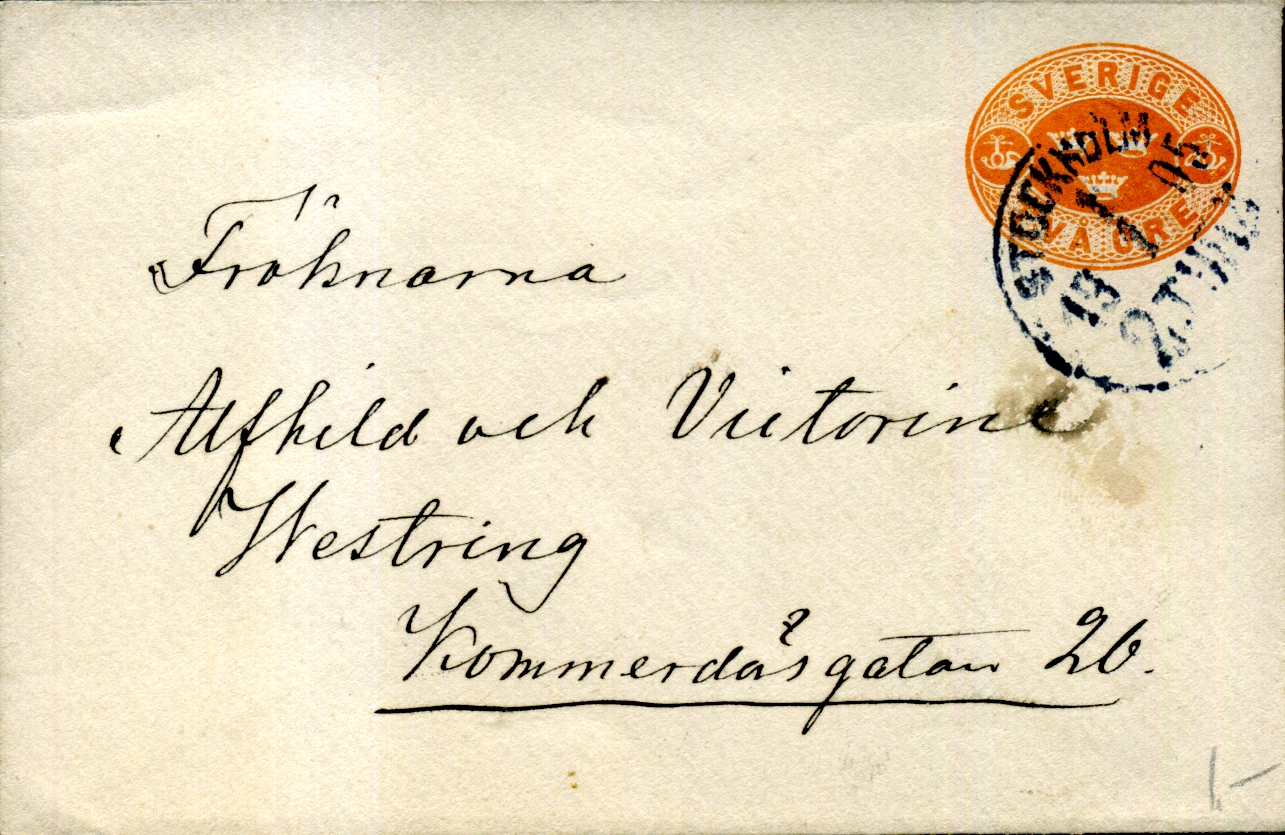 SVERIGE
TVÅ ÖRE
STOCKHOLM
15 1 95
2. TUR
Fröknarna
Alfhild och Victorine
Westring
Kommerdåsgatan 26.
1.-